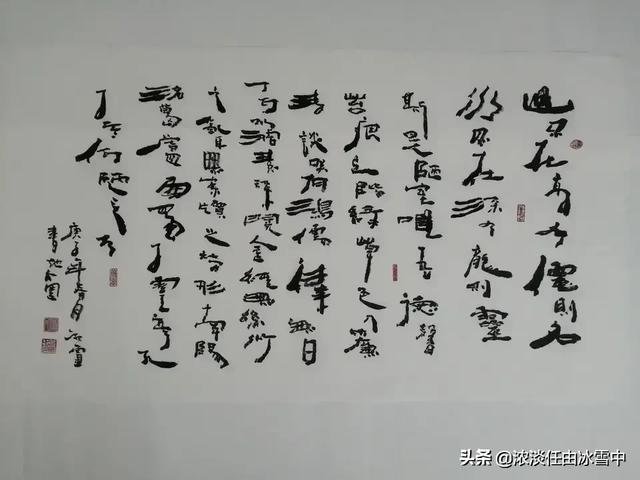 山不在高有僊則名
水不在深有龍則靈
斯是陋室唯吾德馨
苔痕上階綠草色入簾
青談笑有鴻儒往來無白
丁可以調素琴閱金經無絲竹
之亂耳無案牘之勞形南陽
諸葛廬西蜀子雲亭孔
子云何陋之有
庚子年春月冰雪
書
头条 @浓淡任由冰雪中